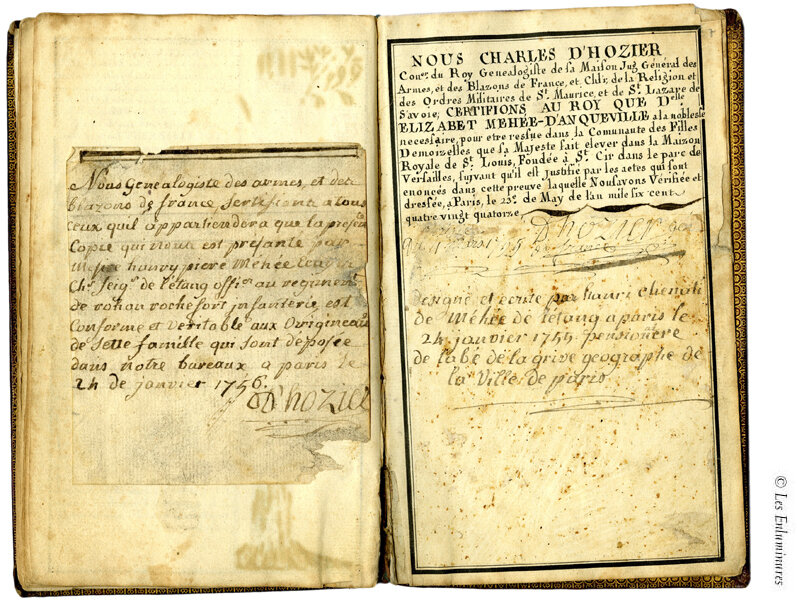 Nous Genealogiste des armes, et des
blazons de france, Sertifions a tous
ceux quil appartiendera que la presente
Copie qui nous est presante par
Messir hanry piere Méhée
Chr. Seigr. de letang offier au regiment
de rohan rochefort jnfanterie est
Conforme et veritable aux Origineau
de Sette famille qui sont deposée
dans notre bureaux a paris le
24 de janvier 1756.
D'hozier
NOUS CHARLES D'HOZIER
Coner. du Roy Genealogiste de sa Maison Jug General des
Armes, et des Blazons de France, et Chlr; de la Religion et
des Ordres Militaires de St. Maurice, et de St. Lazare de
Savoie; CERTIFIONS AU ROY QUE Delle
ELIZABET MEHÉE-D'ANQUEVILLE a la noblesse
necessaire, pour etre resue dans la Comunaute des Filles
Demoizelles que sa Majeste fait elever dans la Maison
Royale de St. Louis, Fondée à St. Cir dans le parc de
Versailles, suivant qu'il est justifié par les actes qui sont
enoncés dans cette preuve laquelle Nousavons Vérifiée et
dressée, a Paris, le 25e. de May de l'an mile six cent
quatre vingt quatorze
D'hozier
designe et ecrite par hanri
de Méhée de letang a paris le
24 janvier 1755 pensionere
de labé de la grive geographe de
la Ville de paris
© Les Enluminures